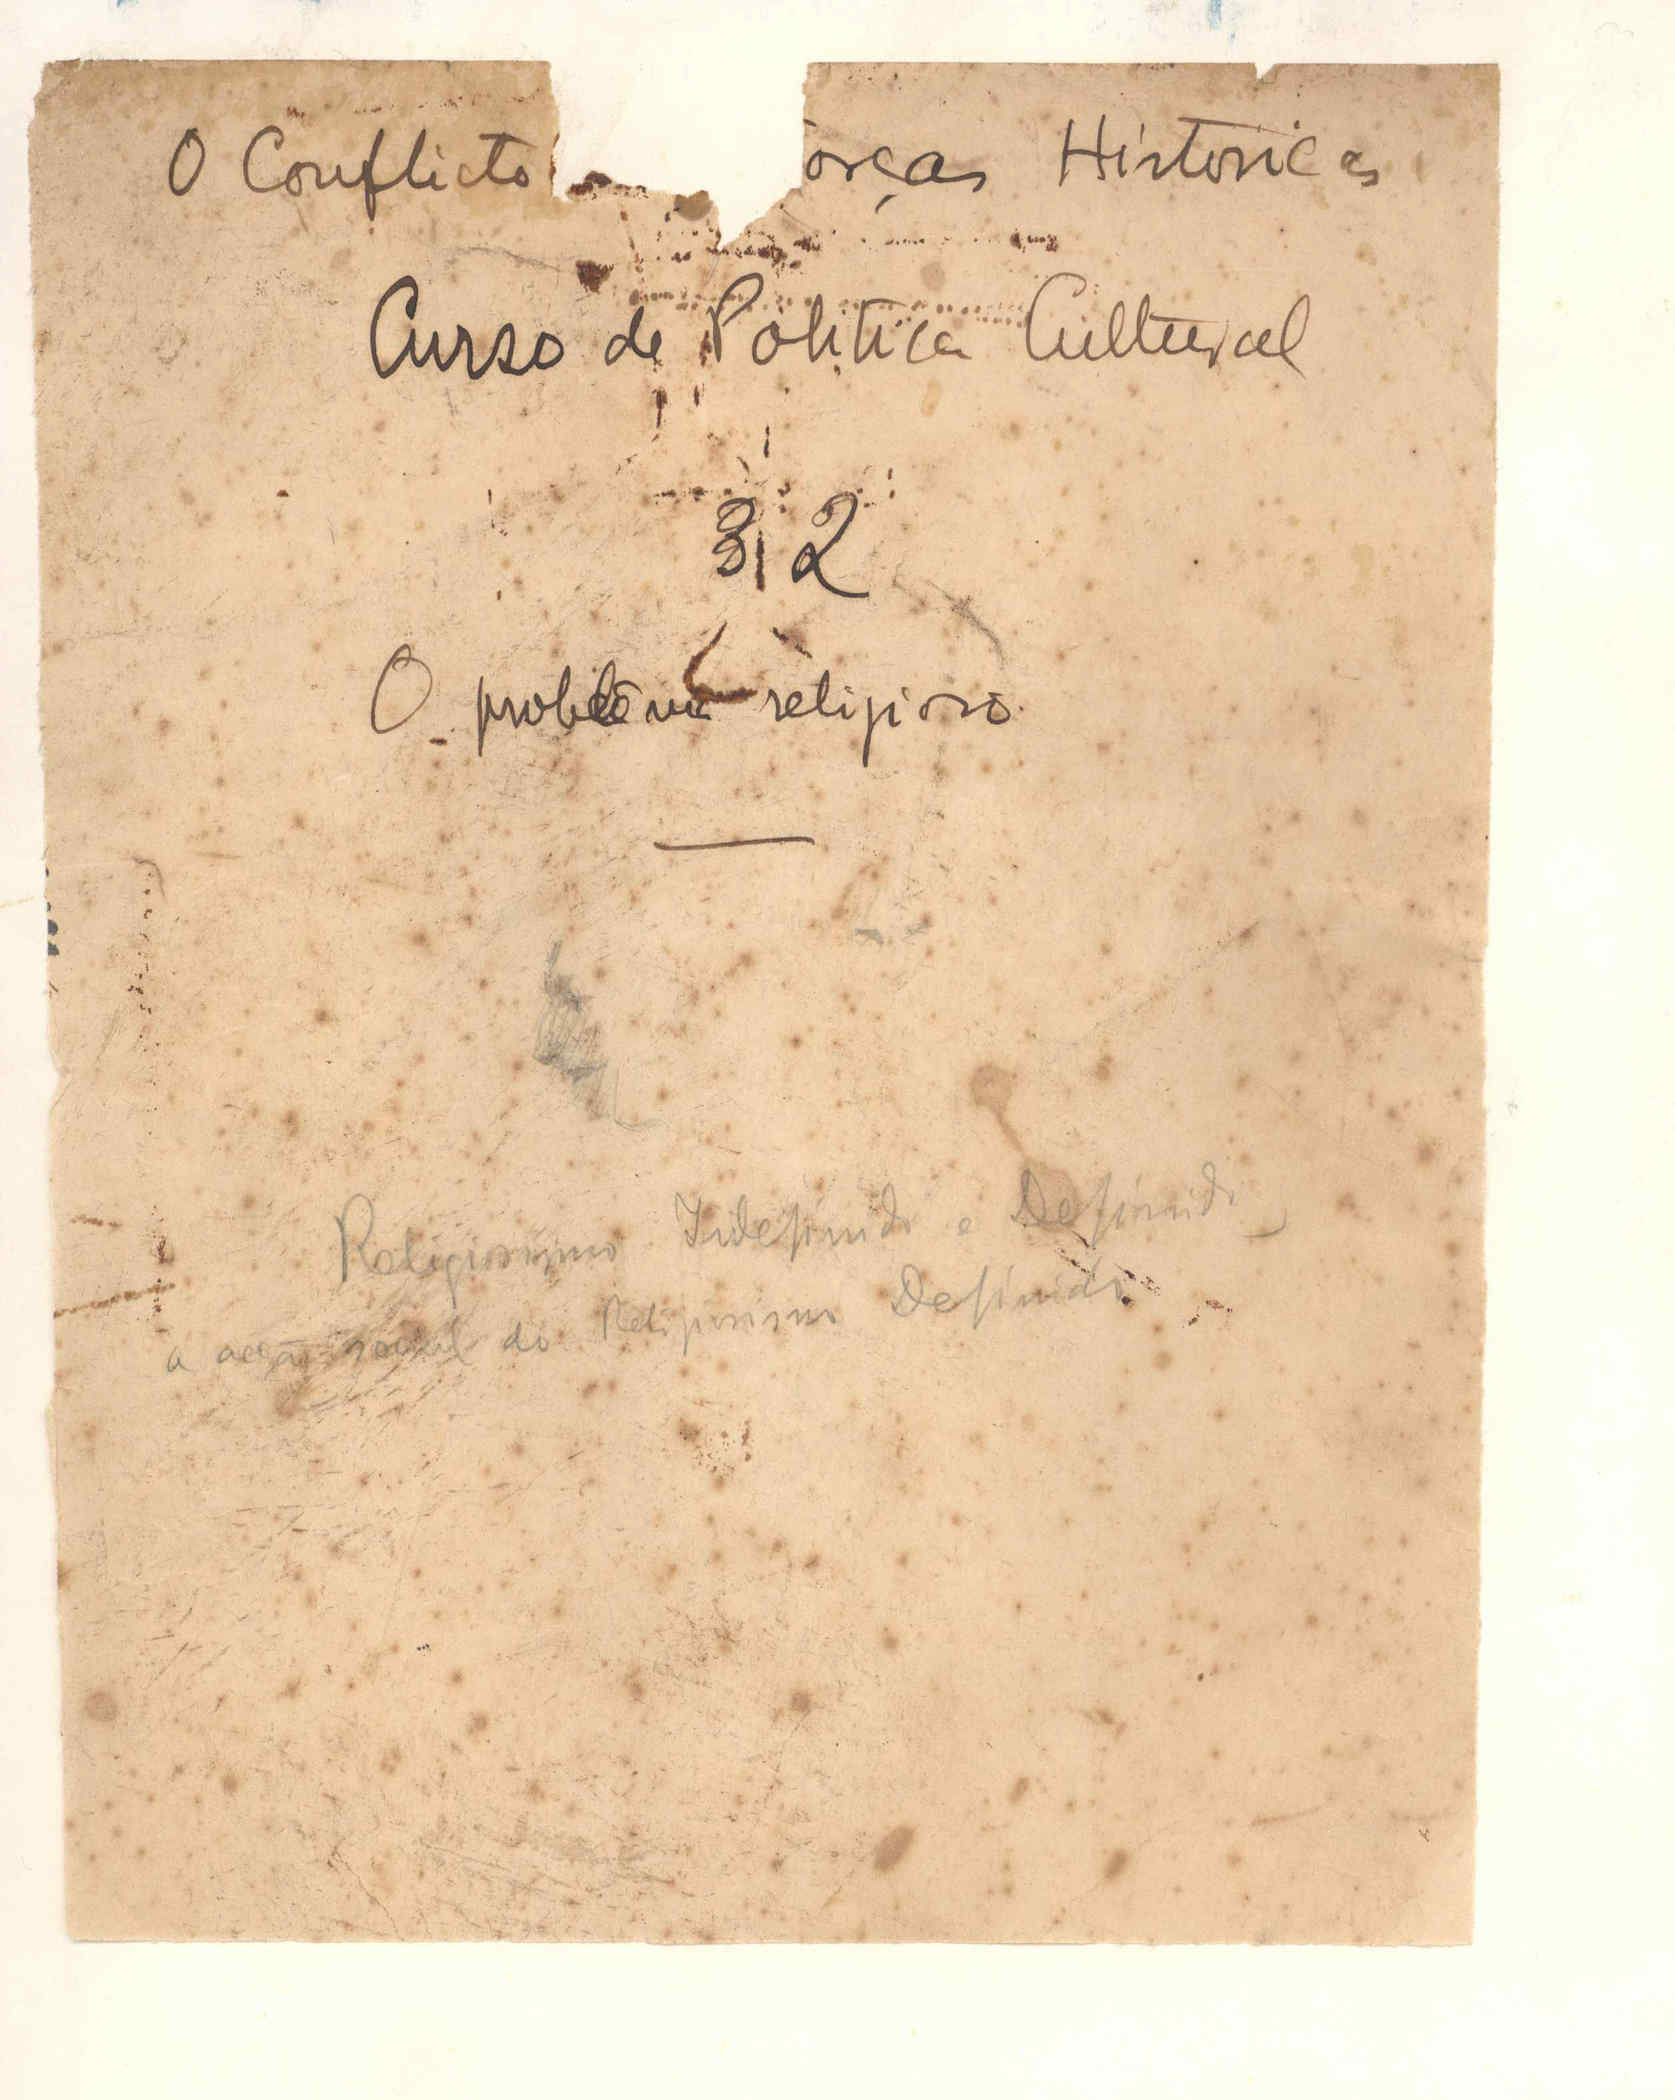 O Conflicto orças Historicas
Curso de Politica Cultural
3 2
O problema religioso
Religiosismo Indefinido e Definido
a acção social do Religiosismo Definido